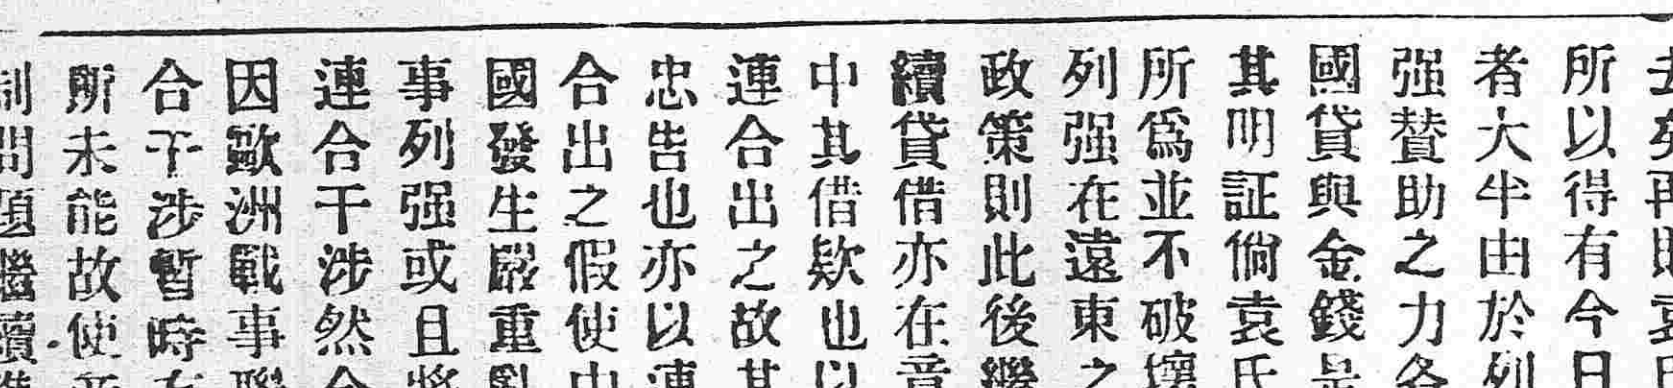 再
所以得有今日
者大半由於列
强贊助之力各
國貸與金錢是
其明証倘袁氏
所爲並不破壞
列强在遠東之
政策則此後繼
續貸借亦在意
中其借欵也以
連合出之故其
忠告也亦以連
合出之假使中
國發生嚴重
事列强或且將
連合干涉然
因歐洲戰事聯
合干涉暫時
所未能故使
問題繼續